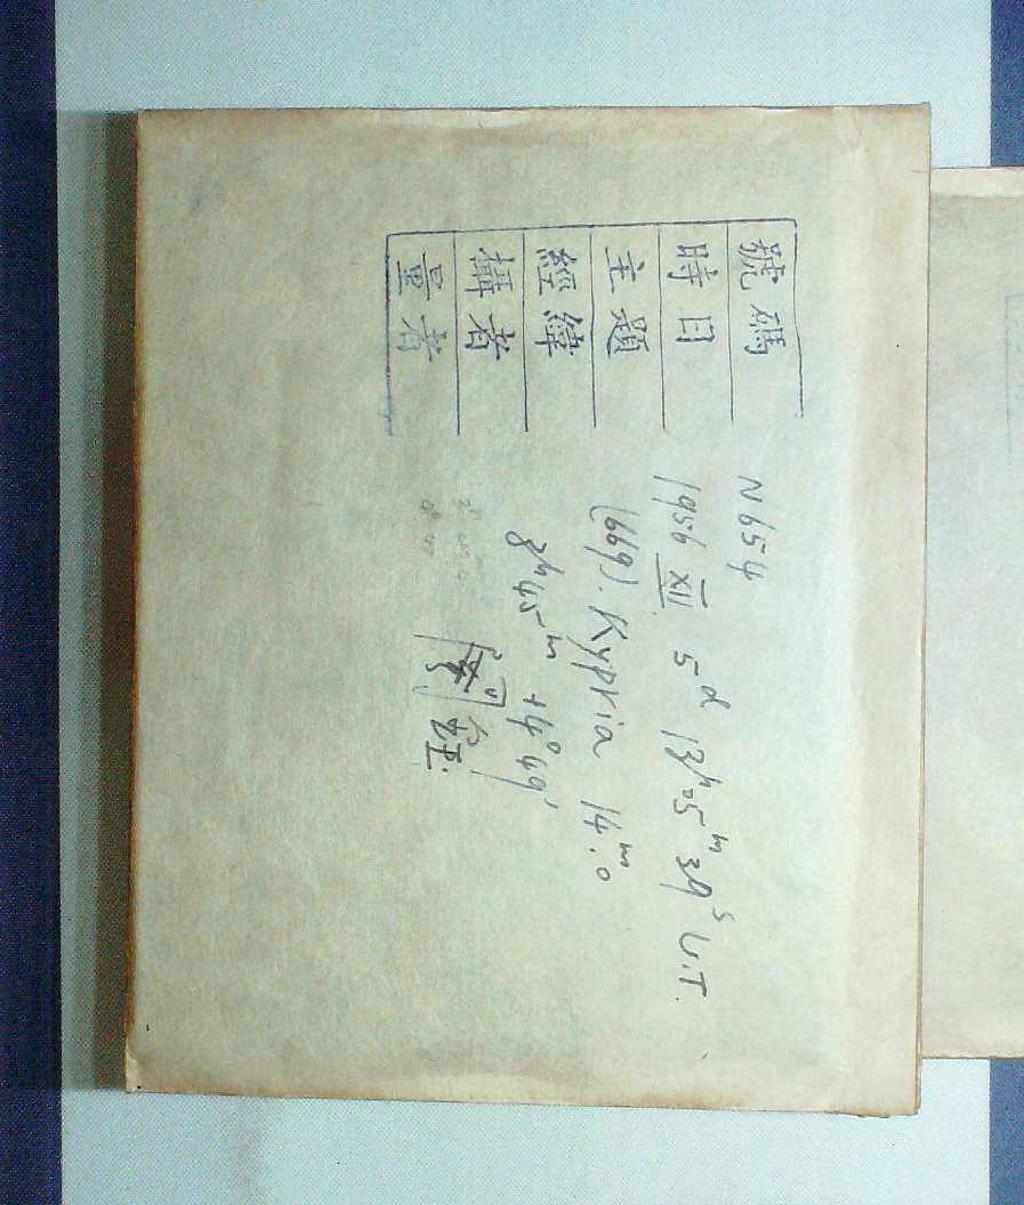 號碼 N654
時日 1956 XII 5ᵈ 13ʰ05ᵐ39ˢ U.T.
主題 (669). Kypria 14ᵐ.0
經緯 3ʰ45ᵐ +4°49'
攝者
量者